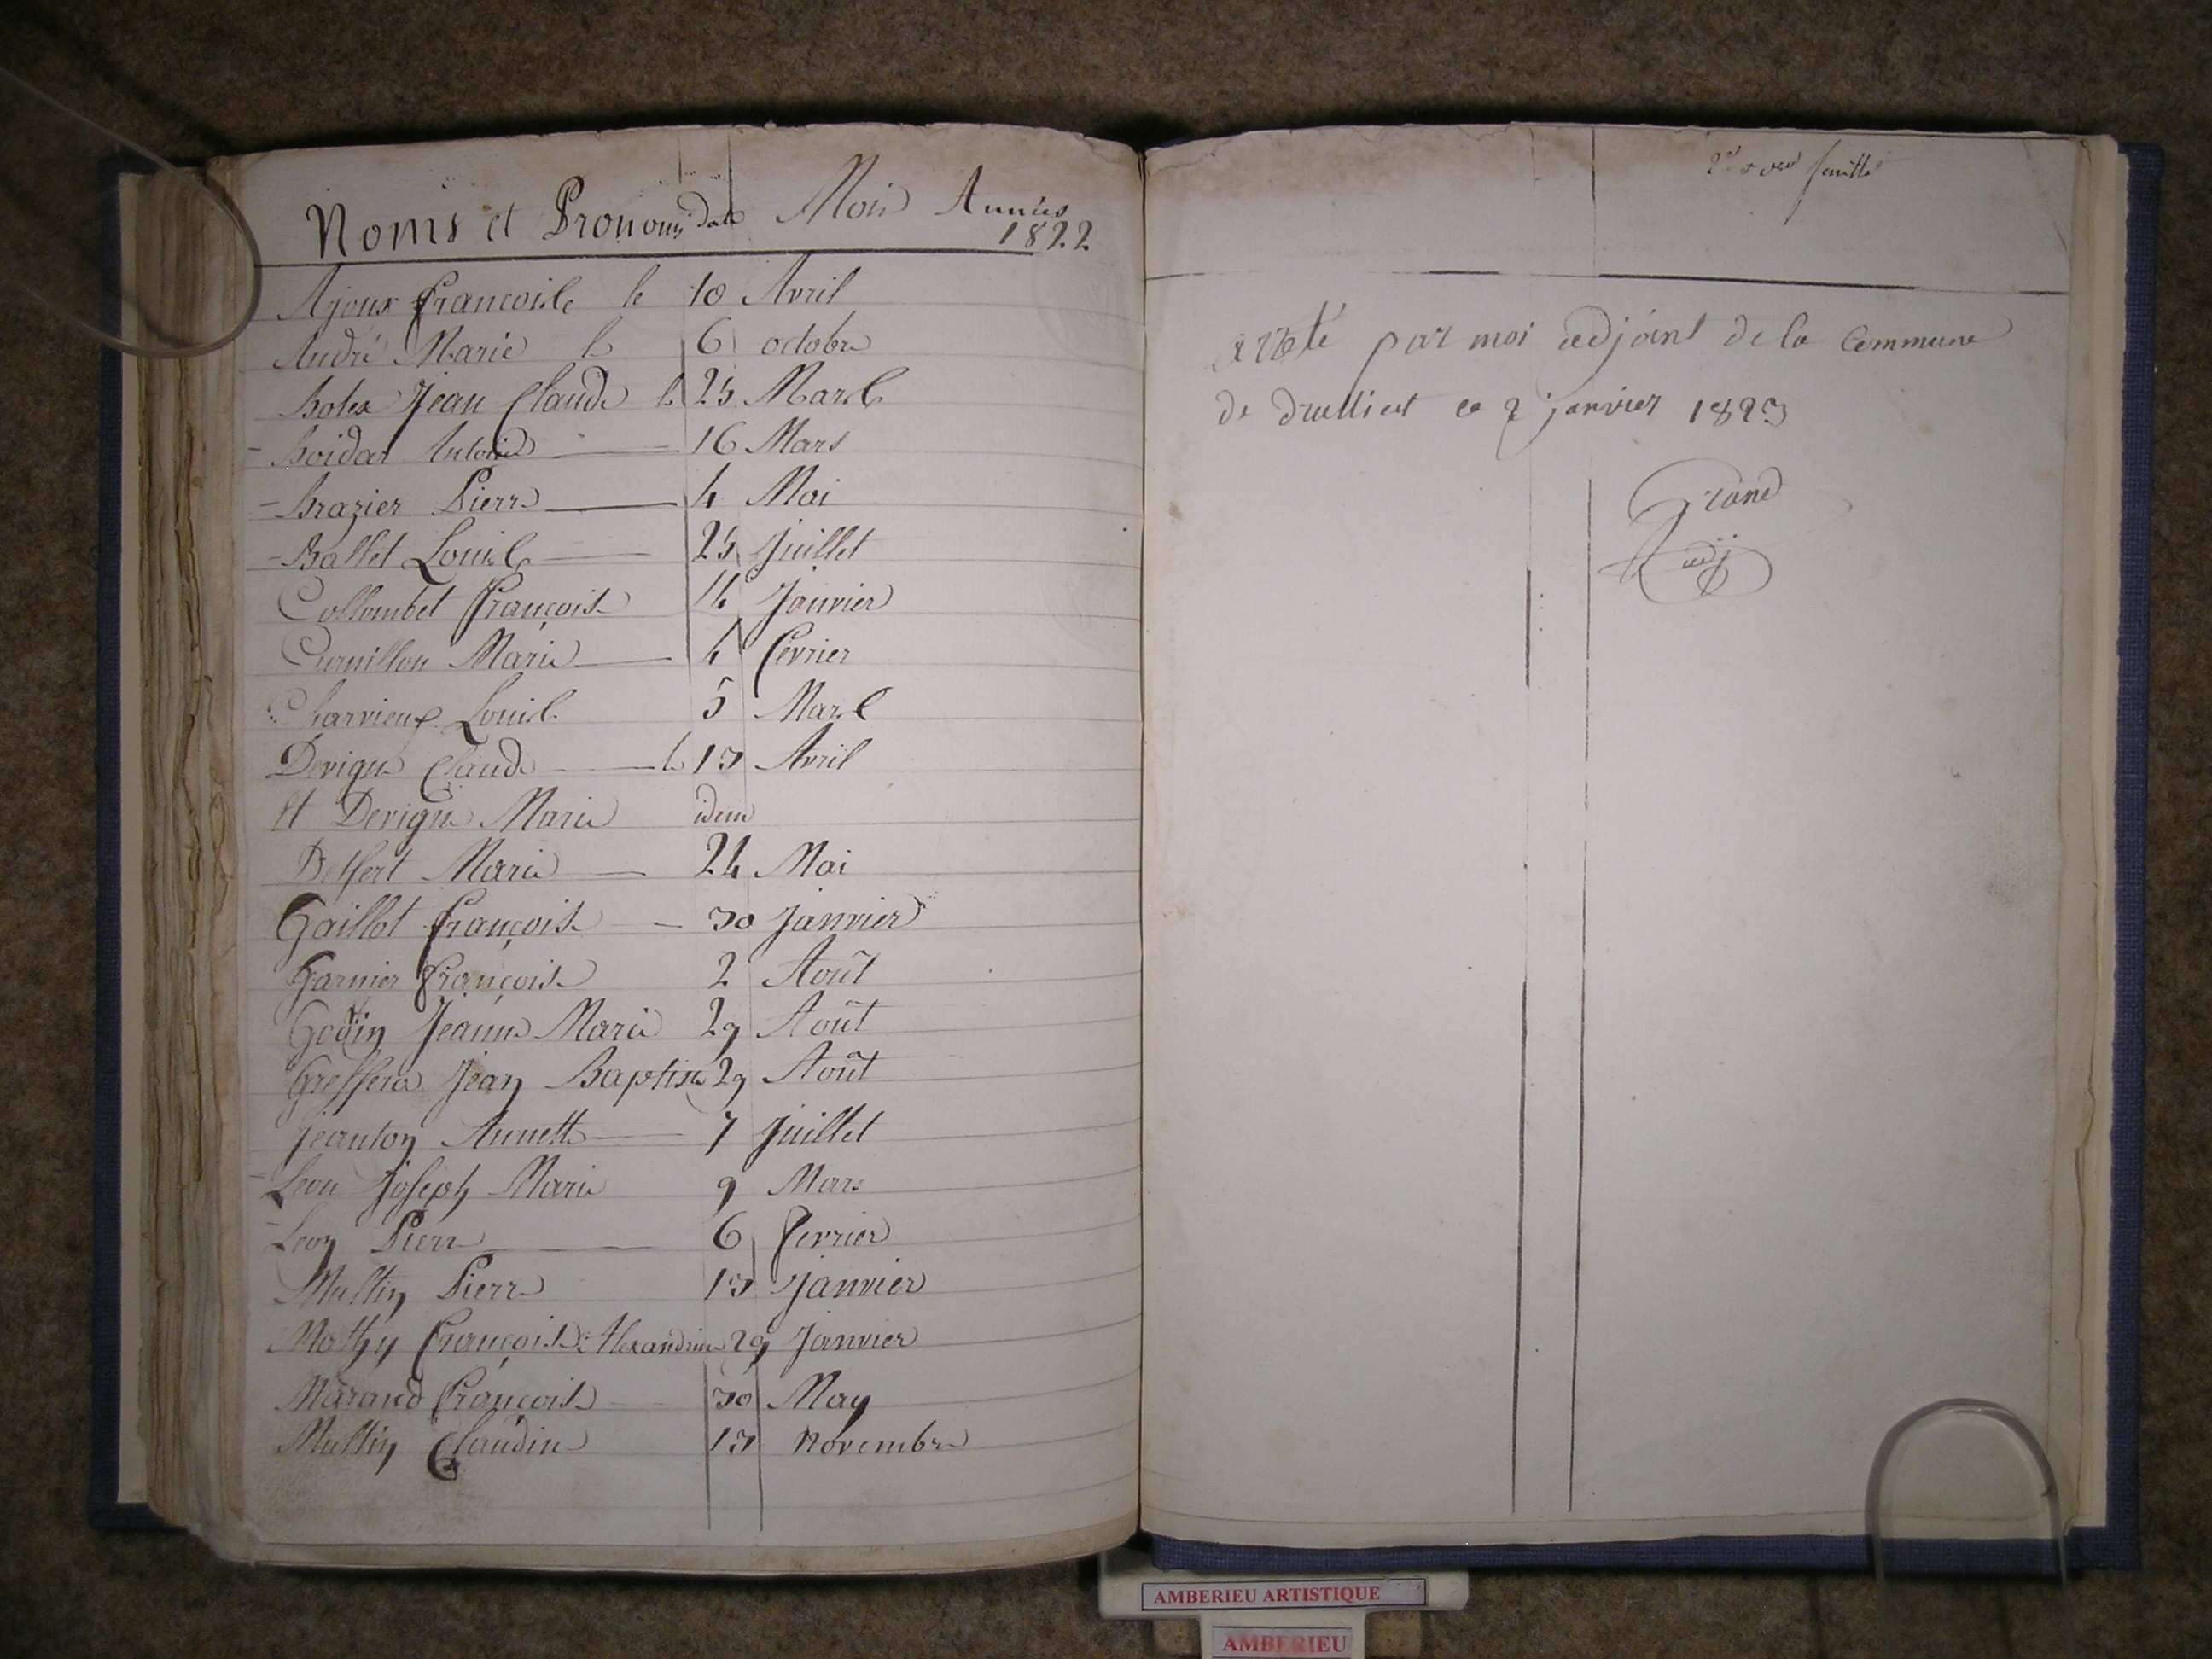 Noms et Prenoms date Mois Années
1822
Ajoux francoise le 10 Avril
André Marie le 6 octobre
Bolex Jean Claude le 25 Mars
Boidar Antoine 16 Mars
Brazier Pierre 4 Mai
Ballet Louise 25 Juillet
Collombet françoise 14 Janvier
Curnillon Marie 4 février
Charvieux Louise 5 Mars
Devigne Claude le 13 Avril
et Devigne Marie idem
Belfert Marie 24 Mai
Gaillot françoise 30 Janvier
Garnier françoise 2 Août
Godin Jeanne Marie 29 Août
Jean Baptiste 29 Août
Jeanton Annette 7 Juillet
Leon Joseph Marie 9 Mars
Leon Pierre 6 fevrier
Multin Pierre 13 Janvier
Mathy françoise Alexandrine 29 Janvier
Marand françoise 30 May
Multin Claudine 13 Novembre
feuille
arreté par moi adjoint de la Commune
de druilliat ce 2 janvier 1823
Grand
adj
AMBERIEU ARTISTIQUE
AMBERIEU